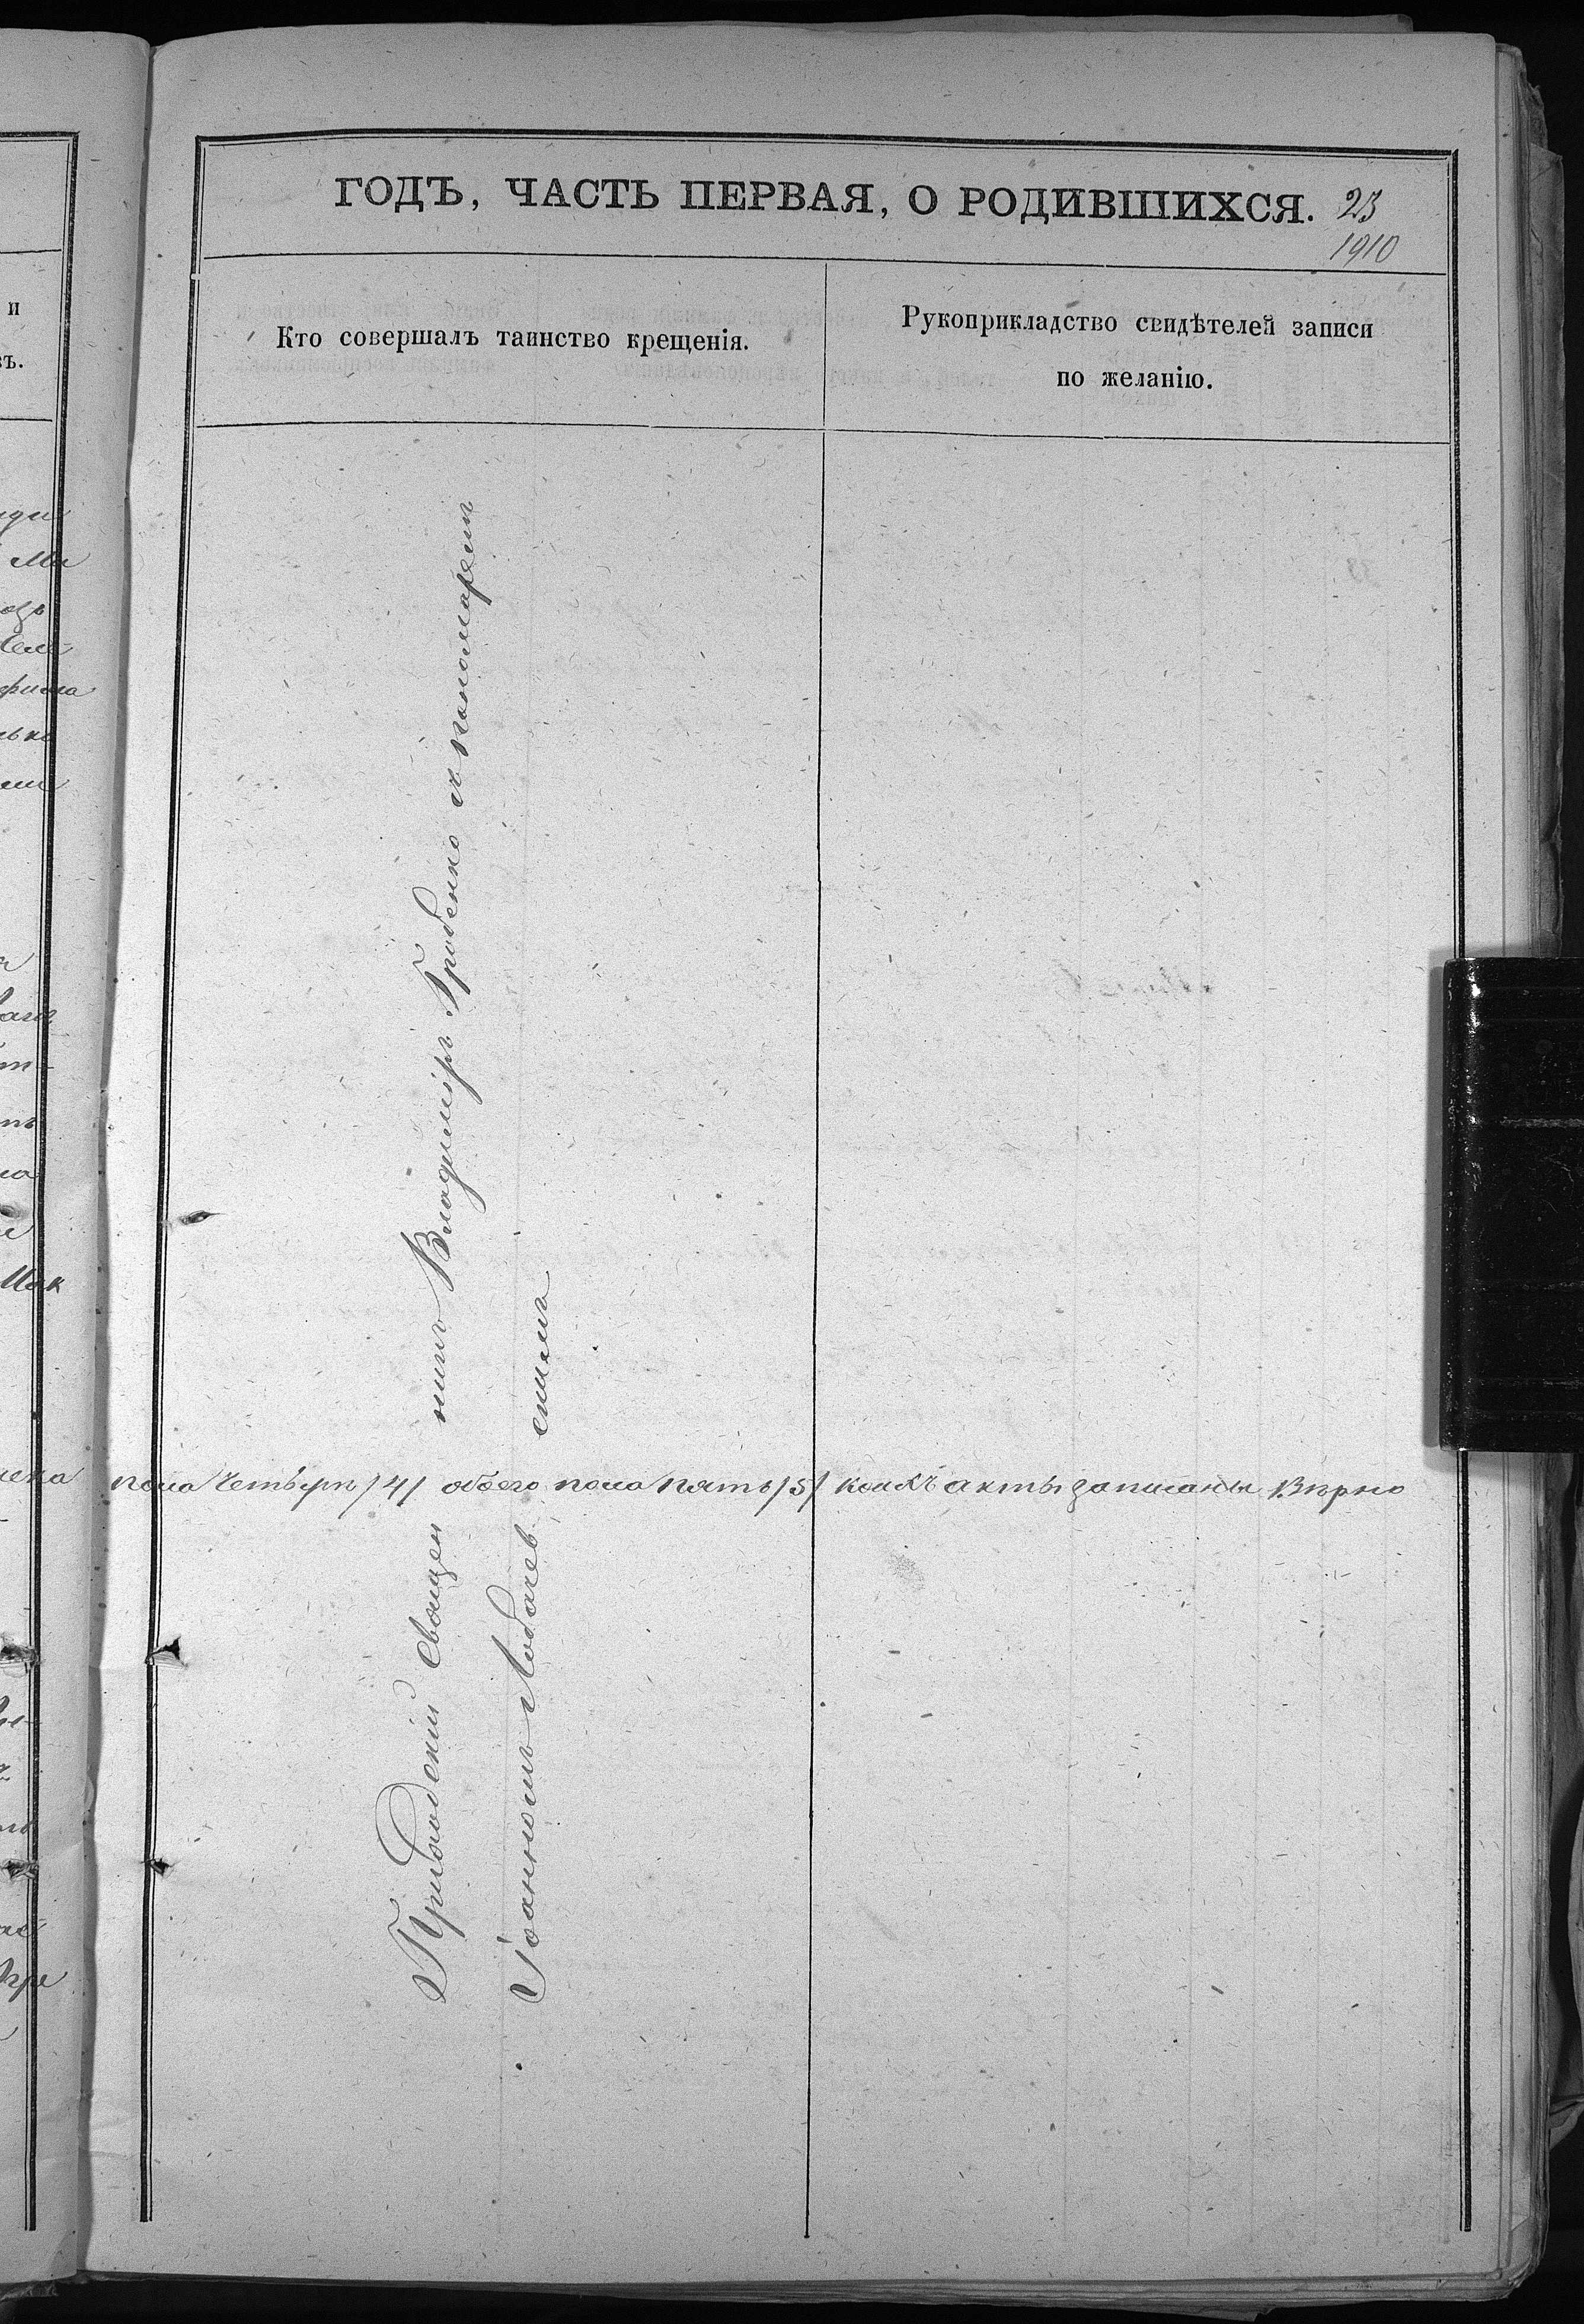 ГОДЪ, ЧАСТЬ ПЕРВАЯ, О РОДИВШИХСЯ. 23
1910
Кто совершалъ таинство крещенія.
Рукоприкладство свидѣтелей записи
по желанію.
Приходскій Священ
никъ Владиміръ Гробенко съ пономаремъ
Іоанномъ Лобачев
скимъ
пола четыре /4/ обоего пола пять /5/ коихъ акты записаны Вѣрно